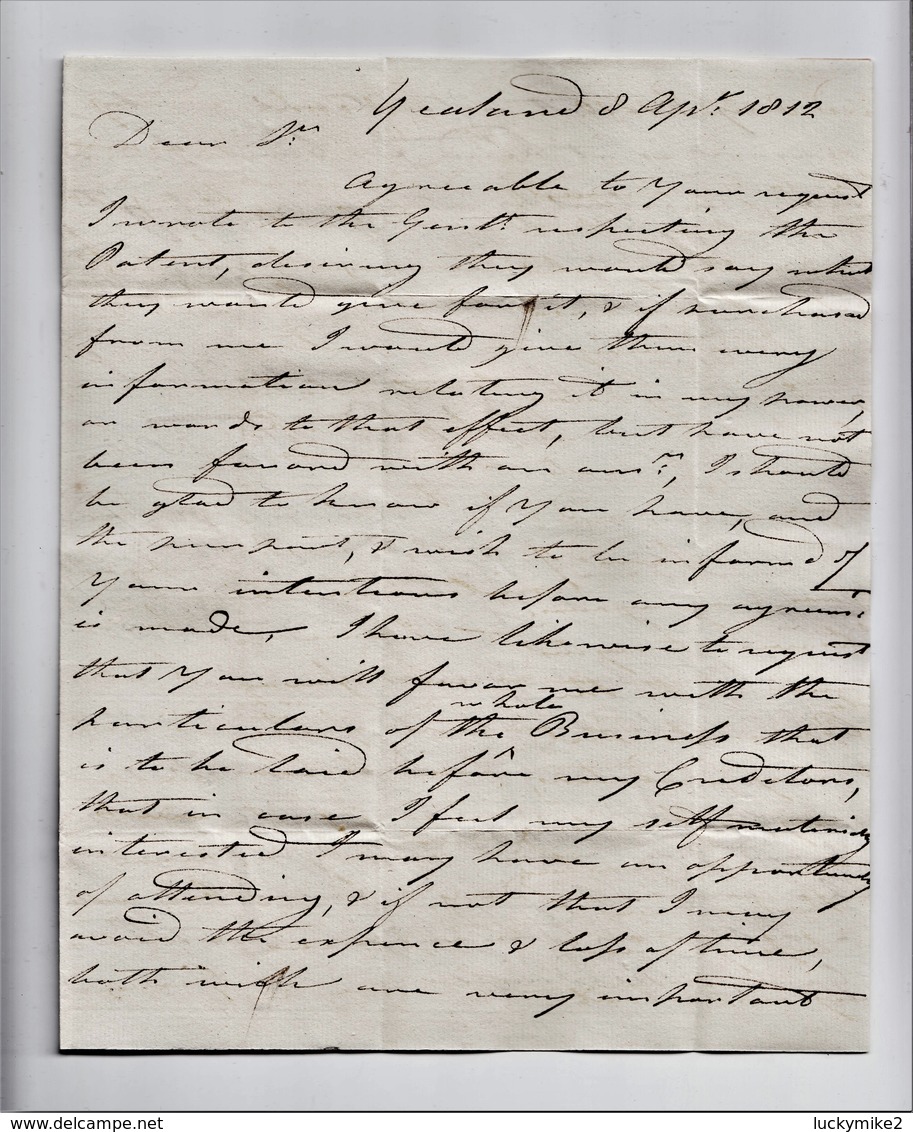 Yealand 8 Apr. 1812
Dear Sr.
Agreeable to Your request
I wrote to the Gentn. respecting the
Patent, desiring they would say what
they would give for it, & if purchased
from me I would give them every
information relating it in my power,
or words to that effect, but have not
been favord with an ansr., I should
be glad to know if You have, and
the purport, & wish to be informd of
Your intentions before any agreemt.
is made, I have likewise to request
that You will favor me with the
whole
particulars of the ^ Business that
is to be laid before my Creditors,
that in case I feel my self materialy
interested I may have an opportunity
of attending, & if not that I may
avoid the expence & loss of time,
both wich are very important
www.delcampe.net
luckymike2